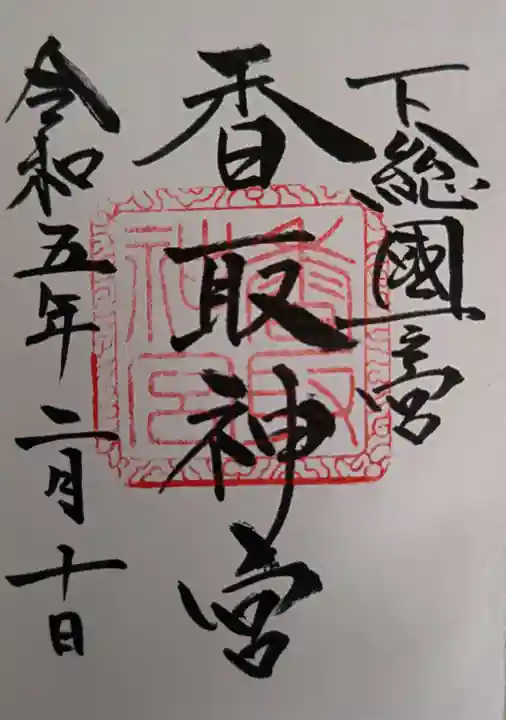 下総國一宮
香取神宮
香取神宮
令和五年二月十日